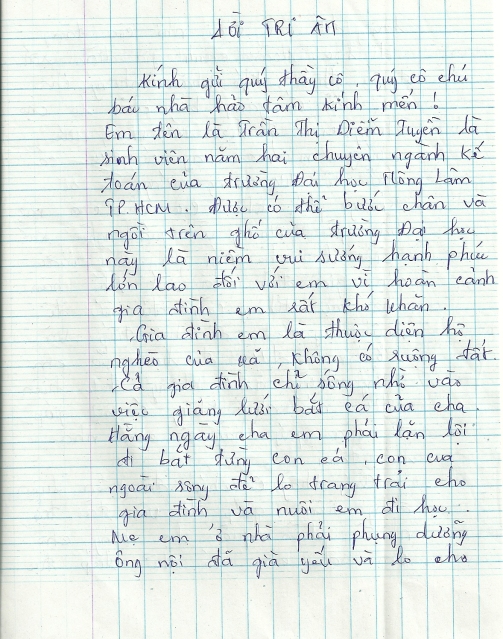 LỜI TRI ÂN
Kính gửi quý thầy cô, quý cô chú
bác nhà hảo tâm kính mến !
Em tên là Trần Thị Diễm Tuyền là
sinh viên năm hai chuyên ngành kế
toán của trường Đại học Nông Lâm
TP. HCM. Được có thể bước chân và
ngồi trên ghế của trường Đại học
này là niềm vui sướng hạnh phúc
lớn lao đối với em vì hoàn cảnh
gia đình em rất khó khăn.
Gia đình em là thuộc diện hộ
nghèo của xã không có ruộng đất.
Cả gia đình chỉ sống nhờ vào
việc giăng lưới bắt cá của cha.
Hằng ngày cha em phải lặn lội
đi bắt từng con cá, con cua
ngoài sông để lo trang trải cho
gia đình và nuôi em đi học.
Mẹ em ở nhà phải phụng dưỡng
ông nội đã già yếu và lo cho